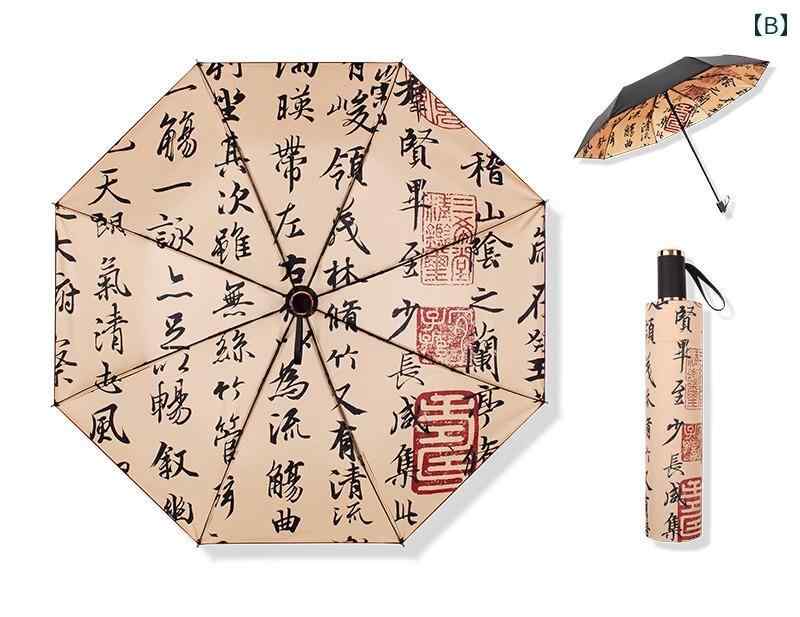 【B】
在癸
稽山陰之蘭亭脩
群賢畢至少長咸集此
有峻領茂林脩竹又有清流
湍暎帶左右為流觴曲
列坐其次雖無絲竹管弦
一觴一詠亦足以暢叙幽
天朗氣清惠風
賢畢至少長咸集
領茂林脩竹又有